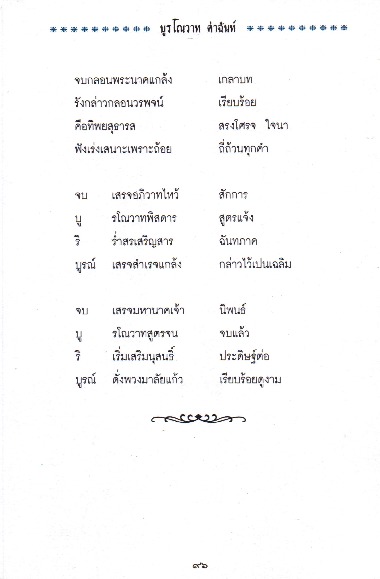 บุรโณวาท คำฉันท์
จบกลอนพระนาคแกล้ง เกลาบท
รังกล่าวกลอนวรพจน์ เรียบร้อย
คือทิพยสุธารส สรงโศรจ ใจนา
ฟังเร่งเสนาะเพราะถ้อย ถี่ถ้วนทุกคำ
จบ เสรจอภิวาทไหว้ สักการ
บู รโณวาทพิสดาร สูตรแจ้ง
ริ ร่ำสรเสริญสาร ฉันทภาค
บูรณ์ เสรจสำเรจแกล้ง กล่าวไว้เปนเฉลิม
จบ เสรจมหานาคเจ้า นิพนธ์
บู รโณวาทสูตรจน จบแล้ว
ริ เริ่มเสริมนุสนธิ์ ประดิษฐ์ต่อ
บูรณ์ ดั่งพวงมาลัยแก้ว เรียบร้อยดูงาม
๙๖